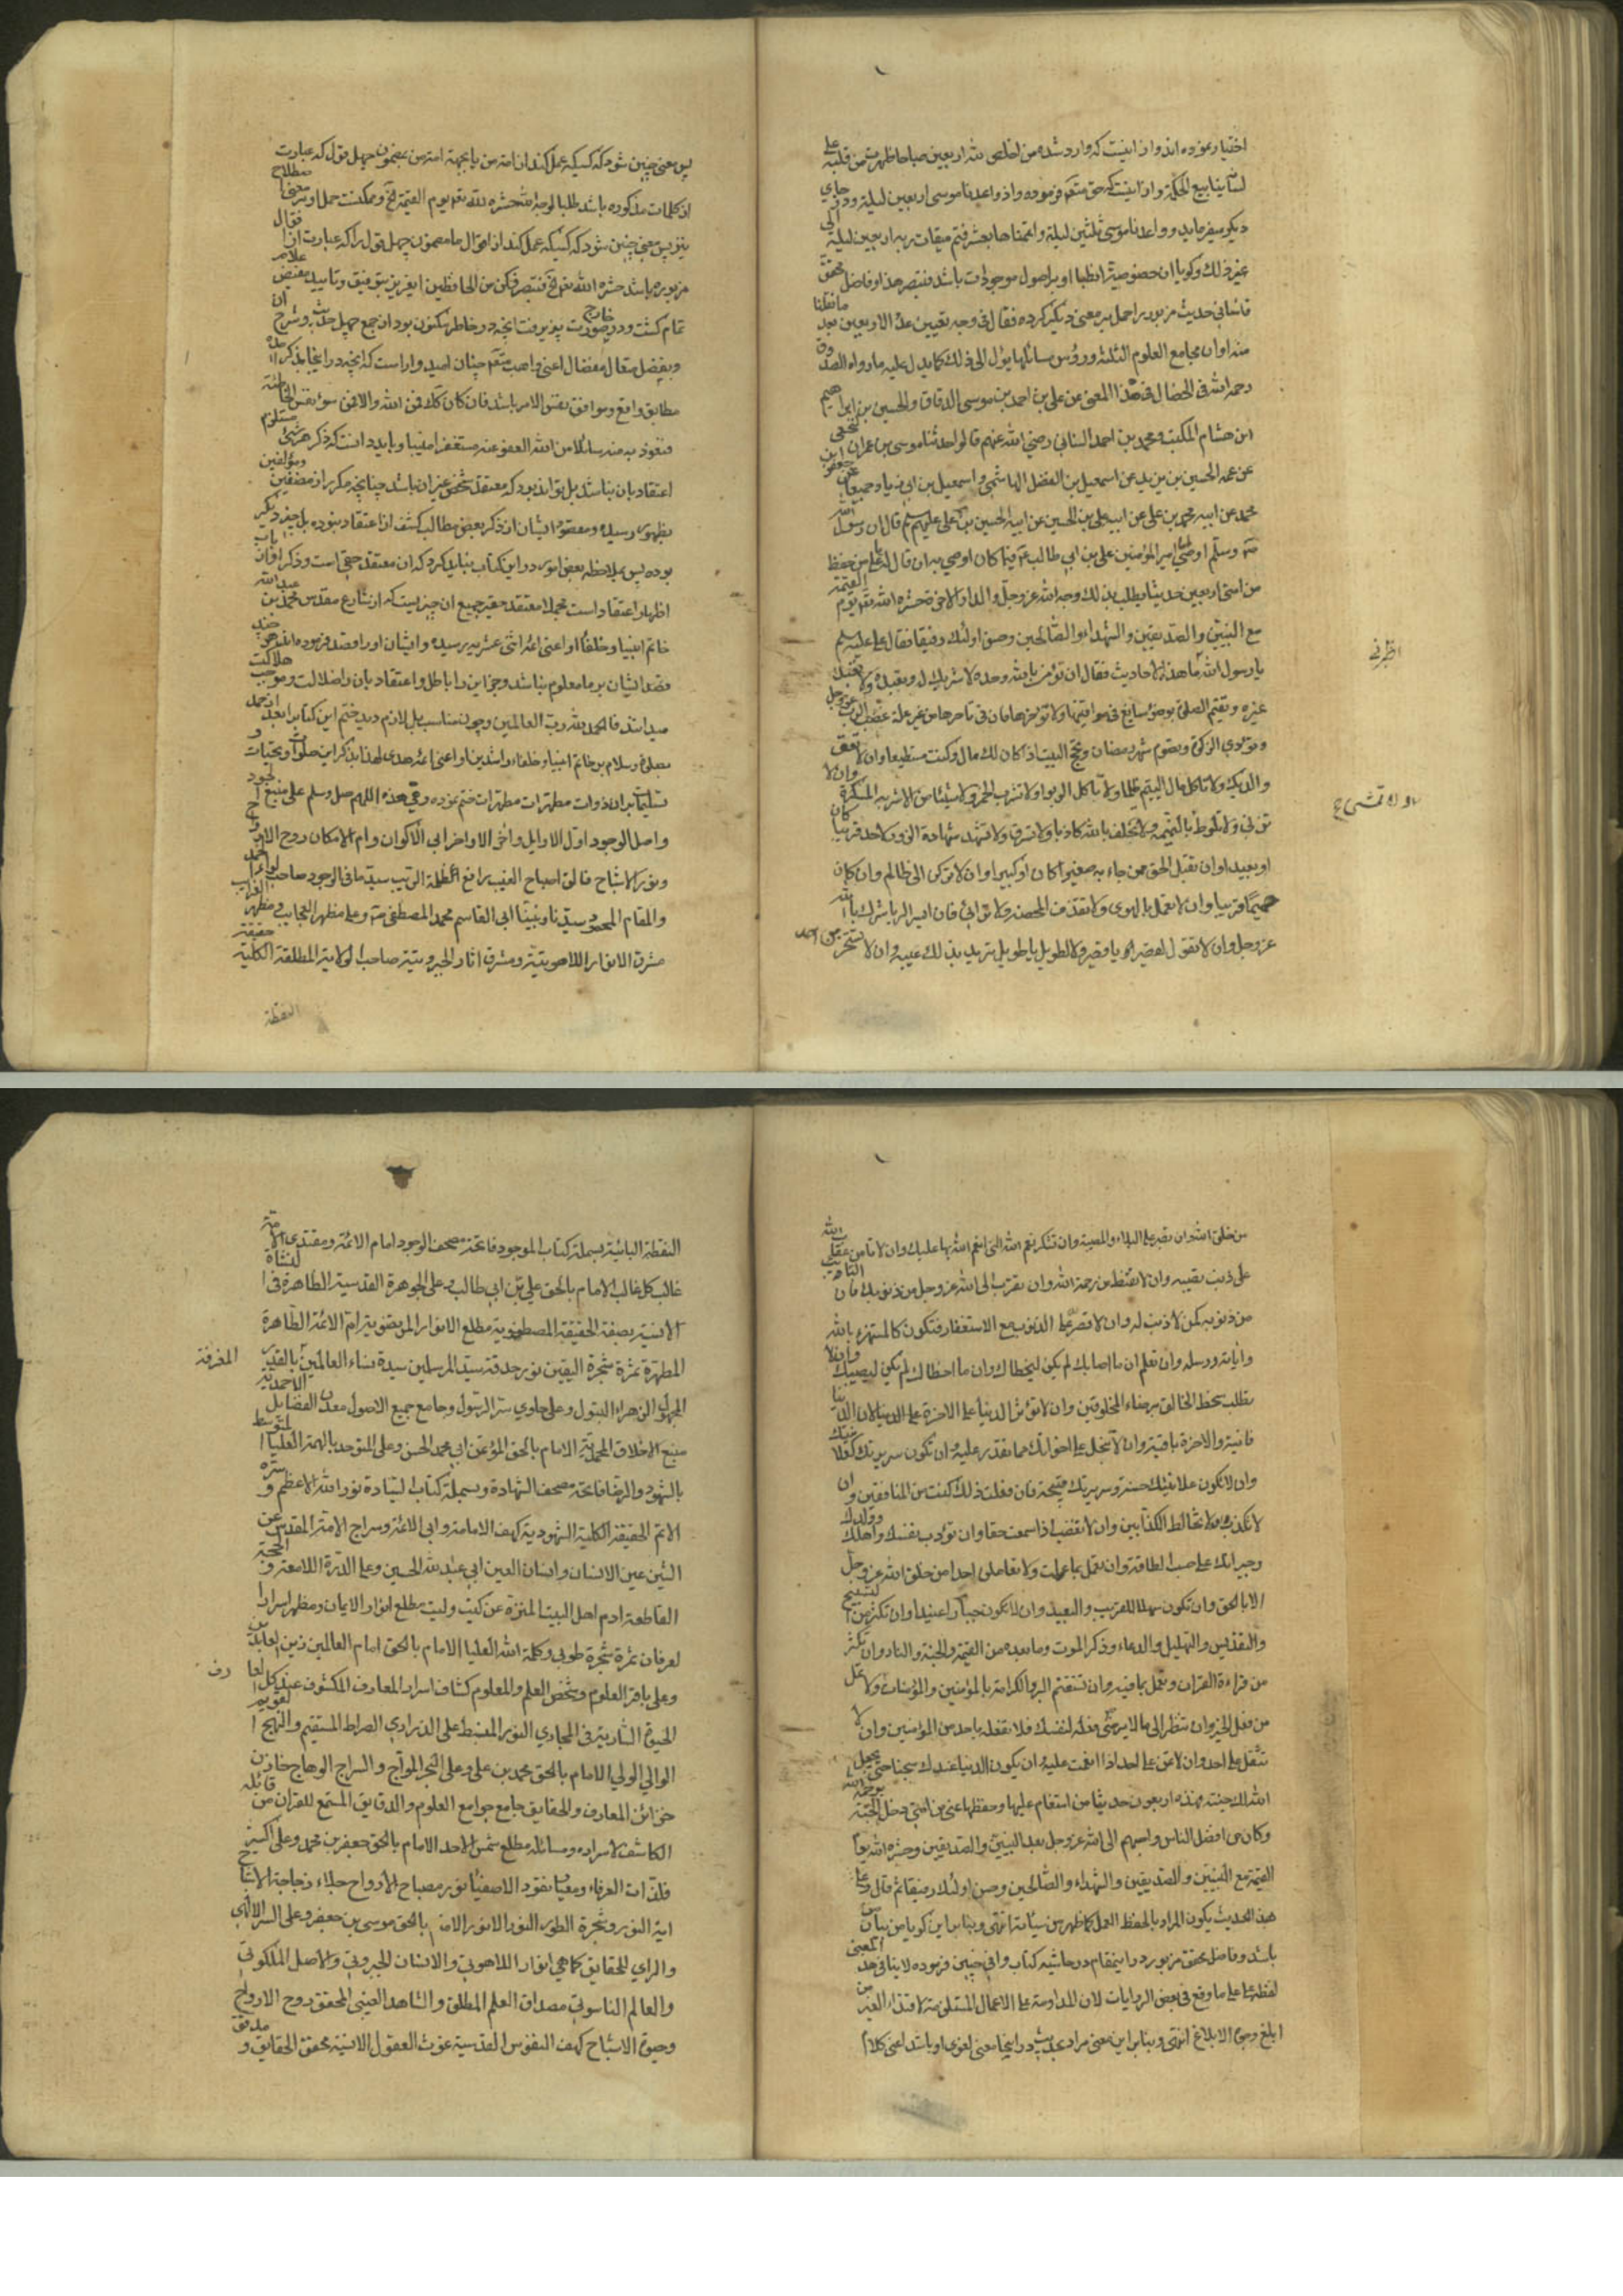 اختیار نموده اند و از اینست که وارد شده من اخلص لله اربعین صباحا ظهرت من قلبه علی
لسانه ینابیع الحکمة و از اینست که حق تعم فرموده و اذ واعدنا موسی اربعین لیلة و در جای
دیکر میفرماید و واعدنا موسی ثلثین لیلة و اتممناها بعشر فتم میقات ربه اربعین لیلة الی
غیر ذلک و کویا ان خصوصیة انطباق او بر اصول موجودات باشد فتبصر هذا و فاضل محقق
قاسانی حدیث مزبور را حمل بر معنی دیکر کرده فقال فی وجه تعیین عدد الاربعین بعد ما نقلنا
منه او ان مجامع العلوم الثلثة و رؤس مسائلها یؤل الی ذلک کما یدل علیه ما رواه الصدوق
رحمه الله فی الخصال فی هذا المعنی عن علی بن احمد بن موسی الدقاق و الحسین بن ابراهیم
ابن هشام المکتب و محمد بن احمد السنانی رضی الله عنهم قالوا حدثنا موسی بن عمران النخعی
عن عمه الحسین بن یزید عن اسمعیل بن الفضل الهاشمی و اسمعیل بن ابی زیاد جمیعا عن جعفر ابن
محمد عن ابیه محمد بن علی عن ابیه علی بن الحسین عن ابیه الحسین بن علی علیهم سلم قال ان رسول الله
صم وسلم اوصی الی امیر المؤمنین علی بن ابی طالب عم فیما کان اوصی به ان قال له یا علی من حفظ
من امتی اربعین حدیثا یطلب بذلک وجه الله عز وجل و الدار الاخرة حشره الله تعم یوم القیمة
مع النبیین و الصدیقین و الشهداء و الصالحین و حسن اولئک رفیقا فقال علی علیه سلم
یا رسول الله ما هذه الاحادیث فقال ان تؤمن بالله وحده لا شریک له و تعبده و لا تعبد
غیره و تقیم الصلوة بوضوء سابغ فی مواقیتها و لا تؤخرها فان فی تاخیرها من غیر علة غضب الرب عز وجل
و تؤدی الزکوة و تصوم شهر رمضان و تحج البیت اذا کان لک مال و کنت مستطیعا و ان لا تعق
والدیک و لا تاکل مال الیتیم ظلما و لا تاکل الربوا و لا تشرب الخمر و لا شیئا من الاشربة المسکرة و ان لا
تزنی و لا تلوط و لا تمشی بالنمیمة و لا تحلف بالله کاذبا و لا تسرق و لا تشهد شهادة الزور لاحد قریبا کان
او بعیدا و ان تقبل الحق ممن جاء به صغیرا کان او کبیرا و ان لا ترکن الی ظالم و ان کان
حمیما قریبا و ان لا تعمل بالهوی و لا تقذف المحصنة و لا ترائی فان ایسر الریا شرک بالله
عز وجل و ان لا تقول لقصیر یا قصیر و لا لطویل یا طویل ترید بذلک عیبه و ان لا تسخر من احد
پس معنی چنین شود که کسیکه عمل کند از امت من یا بجهة امت من بمضمون چهل قول که عبارت
از کلمات مذکوره باشد طلبا لوجه الله حشره الله تعم یوم القیمة الخ و ممکنست حمل او بر معنی اصطلاح
نیز پس معنی چنین شود که کسیکه عمل کند از اقوال ما مضمون چهل قول را که عبارت از اقوال
مزبوره باشد حشره الله تعم الخ فتبصر فکن من الحافظین ایعزیز بتوفیق و تایید مفیض علام
تمام کشت و در خارج صورت پذیرفت انچه در خاطر مکنون بود از جمع چهل حدیث و شرح ان
و بفضل متعال مفضال اعنی واهب متعم چنان امیدوار است که انچه در اینجا بذکر امده
مطابق واقع و موافق نفس الامر باشد فان کان کلا فمن الله و الا فمن سوء نفس الخاطئة
فنعوذ به منه سائلا من الله العفو عنه مستغفرا منیبا و باید دانست که ذکر هر شیئ مستلزم
اعتقاد بان نباشد بل تواند بود که معتقد شخص غیر ان باشد چنانچه مکرر از مصنفین و مؤلفین
بظهور رسیده و مقصود ایشان از ذکر بعض مطالب کشف از اعتقاد نبوده بل چیز دیکر
بوده پس بملاحظه بعض امور در این کتاب نباید کرد که ان معتقد حقیر است و ذکر او از باب
اظهار اعتقاد است مجملا معتقد حقیر جمیع ان چیزیست که از شارع مقدس محمد بن عبد الله
خاتم انبیا و خلفاء او اعنی ائمه اثنی عشر به رسیده و ایشان او را قصد فرموده اند هر چند
قصد ایشان بر ما معلوم نباشد و جز این را باطل و اعتقاد بان را ضلالت و موجب هلاکت
میدانند فالحمد لله رب العالمین و چون مناسب بل لازم دید ختم این کتاب را بعد از حمد
بصلوة و سلام بر خاتم انبیا و خلفاء راشدین او اعنی ائمه هدی لهذا بذکر این صلوات و تحیات و
تسلیمات بر ان ذوات مطهرات مطهرات ختم نموده و هی هذه اللهم صل وسلم علی منبع الجود
و اصل الوجود اول الاوایل و اخر الاواخر ابی الاکوان و ام الامکان روح الارواح
و نور الاشباح فالق اصباح الغیب رافع ظلمة الریب سید ما فی الوجود صاحب لواء الحمد
و المقام المحمود سیدنا و نبینا ابی القاسم محمد المصطفی صم و علی مظهر العجایب و مظهر الغرائب
مشرق الانوار اللاهوتیة و مشرق اثار الجبروتیة صاحب الولایة المطلقة الکلیة حقیقة
النقطة
من خلق الله و ان تصبر علی البلاء و المصیبة و ان تشکر نعم الله التی انعم الله بها علیک و ان لا تامن عقاب الله
علی ذنب تصیبه و ان لا تقنط من رحمة الله و ان تتوب الی الله عز وجل من ذنوبک فان التائب
من ذنوبه کمن لا ذنب له و ان لا تصر علی الذنوب مع الاستغفار فتکون کالمستهزء بالله
و ایاته و رسله و ان تعلم ان ما اصابک لم یکن لیخطاک و ان ما اخطاک لم یکن لیصیبک و ان لا
تطلب سخط الخالق برضاء المخلوقین و ان لا تؤثر الدنیا علی الاخرة لان الدنیا
فانیة و الاخرة باقیة و ان لا تبخل علی اخوانک مما تقدر علیه و ان تکون سریرتک کعلانیتک
و ان لا تکون علانیتک حسنة و سریرتک قبیحة فان فعلت ذلک کنت من المنافقین و ان
لا تکذب و لا تخالط الکذابین و ان لا تغضب اذا سمعت حقا و ان تؤدب نفسک و اهلک و ولدک
و جیرانک علی حسب الطاقة و ان تعمل بما علمت و لا تعاملن احدا من خلق الله عز وجل
الا بالحق و ان تکون سهلا للقریب و البعید و ان لا تکون جبارا عنیدا و ان تکثر من التسبیح
و التقدیس و التهلیل و الدعاء و ذکر الموت و ما بعده من القیمة و الجنة و النار و ان تکثر
من قراءة القران و تعمل بما فیه و ان تستغنم البر و الکرامة بالمؤمنین و المؤمنات و لا تمل
من فعل الخیر و ان تنظر الی ما لا ترضی فعله لنفسک فلا تفعله باحد من المؤمنین و ان لا
تثقل علی احد و ان لا تمن علی احد اذا انعمت علیه و ان یکون الدنیا عندک سجنا حتی یجعل
الله لک جنته فهذه اربعون حدیثا من استقام علیها و حفظها عنی من امتی دخل الجنة برحمة الله
و کان من افضل الناس و احبهم الی الله عز وجل بعد النبیین و الصدیقین و حشره الله یوم
القیمة مع النبیین و الصدیقین و الشهداء و الصالحین و حسن اولئک رفیقا ثم قال و علی
هذا الحدیث یکون المراد بالحفظ العمل کما ظهر من سیاقه انتهی و بنابر این کویا من بیان
باشد و فاضل محقق مزبور در اینمقام در حاشیه کتاب وافی چنین فرموده لا ینافی هذا المعنی
لفظة علی علی ما وقع فی بعض الروایات لان المداومة علی الاعمال المستلزمة لاقتداء الغیر من
ابلغ وجوه الابلاغ انتهی و بنابر این معنی مراد بحدیث در اینجا معنی لغوی او باشد اعنی کلام
النقطة البائیة بسملة کتاب الموجود فاتحة مصحف الوجود امام الائمة و مقتدی الامة
غالب کل غالب الامام بالحق علی بن ابی طالب و علی الجوهرة القدسیة الطاهرة فی النشاة
الانسیة بصفة الحقیقة المصطفویة مطلع الانوار المرتضویة ام الائمة الطاهرة
المطهرة ثمرة شجرة الیقین نور حدقة سید المرسلین سیدة نساء العالمین بالقدر
المجهول الزهراء البتول و علی حاوی ستر الرسول و جامع جمیع الاصول معدن الفضایل الاحمدیة
منبع الاخلاق المحمدیة الامام بالحق المؤتمن ابی محمد الحسن و علی المتوحد بالهمة العلیا
بالشهود و الرضا فاتحة مصحف الشهادة و بسملة کتاب السیادة نور الله الاعظم و ستره
الاتم الحقیقة الکلیة الشهودیة کهف الامامة و ابی الائمة و سراج الامة المقدس عن
الشین عین الانسان و انسان العین ابی عبد الله الحسین و علی الدرة اللامعة و الحجة
القاطعة ادم اهل البیت المنزه عن کیت و لیت مطلع انوار الایمان و مظهر اسرار
العرفان ثمرة شجرة طوبی و کلمة الله العلیا الامام بالحق امام العالمین زین العابدین
و علی باقر العلوم و شخص العلم و المعلوم کشاف اسرار المعارف المکشوف عند کل العارف
الحیوة الساریة فی المجاری النور المنبسط علی الدراری الصراط المستقیم و النهج القویم
الوالی الولی الامام بالحق محمد بن علی و علی البحر المواج و السراج الوهاج خازن
خزائن المعارف و الحقایق جامع جوامع العلوم و الدقایق المستمع للقران من قائله
الکاشف لاسراره و مسائله مطلع شمس الاحد الامام بالحق جعفر بن محمد و علی اکسیر
فلزات العرفاء و معیار نقود الاصفیاء نور مصباح الارواح جلاء زجاجة الاشباح
ایة النور و شجرة الطور النور الانور الامام بالحق موسی بن جعفر و علی السر الالهی
و الرای للحقایق کما هی انوار اللاهوتی و الانسان الجبروتی و الاصل الملکوتی
و العالم الناسوتی مصداق العلم المطلق و الشاهد الغیبی المحقق روح الارواح
و حیوة الاشباح کهف النفوس القدسیة غوث العقول الانسیة محقق الحقایق و مدقق